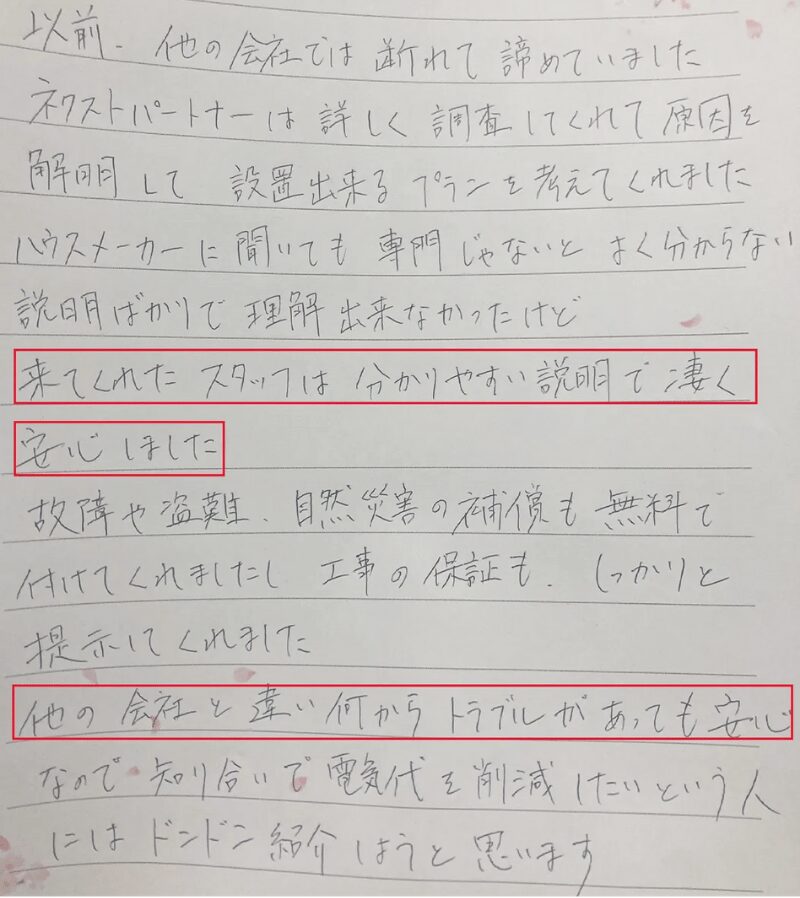 以前、他の会社では断れて諦めていました
ネクストパートナーは詳しく調査してくれて原因を
解明して 設置出来るプランを考えてくれました
ハウスメーカーに聞いても専門じゃないとよく分からない
説明ばかりで理解出来なかったけど
来てくれたスタッフは分かりやすい説明で凄く
安心しました
故障や盗難、自然災害の補償も無料で
付けてくれましたし 工事の保証も、しっかりと
提示してくれました
他の会社と違い何からトラブルがあっても安心
なので知り合いで電気代を削減したいという人
にはドンドン紹介しようと思います